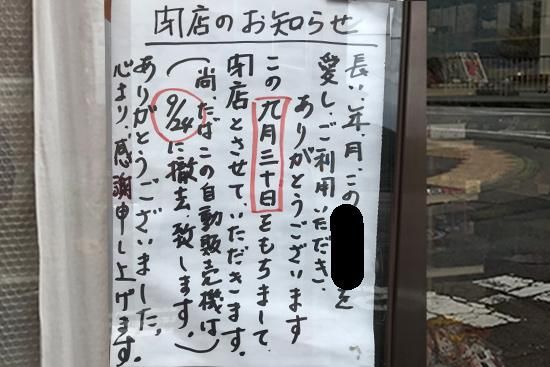 閉店のお知らせ
長い年月、この を
愛し、ご利用いただき、
ありがとうございます
この九月三十日をもちまして、
閉店とさせていただきます。
(尚、たばこの自動販売機は
9/24に撤去致します。)
ありがとうございました。
心より、感謝申し上げます。